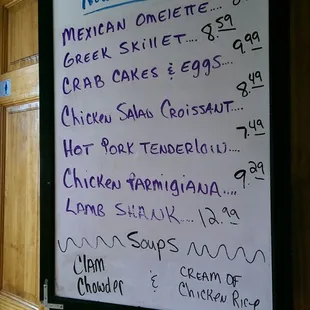 MEXICAN OMElETTE....
GREEK SKILLET.... 8.59
CRAB CAKES & EGGS.... 9.99
Chicken Salad Croissant... 8.49
HOT PORK TENDERLOIN.... 7.49
Chicken Parmigiana.... 9.29
LAMB SHANK.... 12.99
Soups
Clam Chowder & CREAM OF Chicken Rice